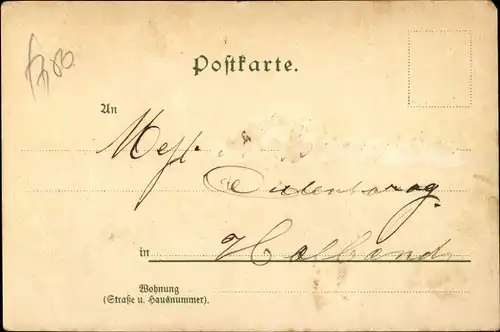 Postkarte.
An
Mess.
Oudenbarag.
in Holland
Wohnung
(Straße u. Hausnummer).